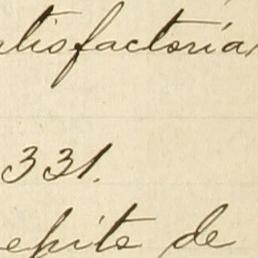 atisfactoria
331.
epite de